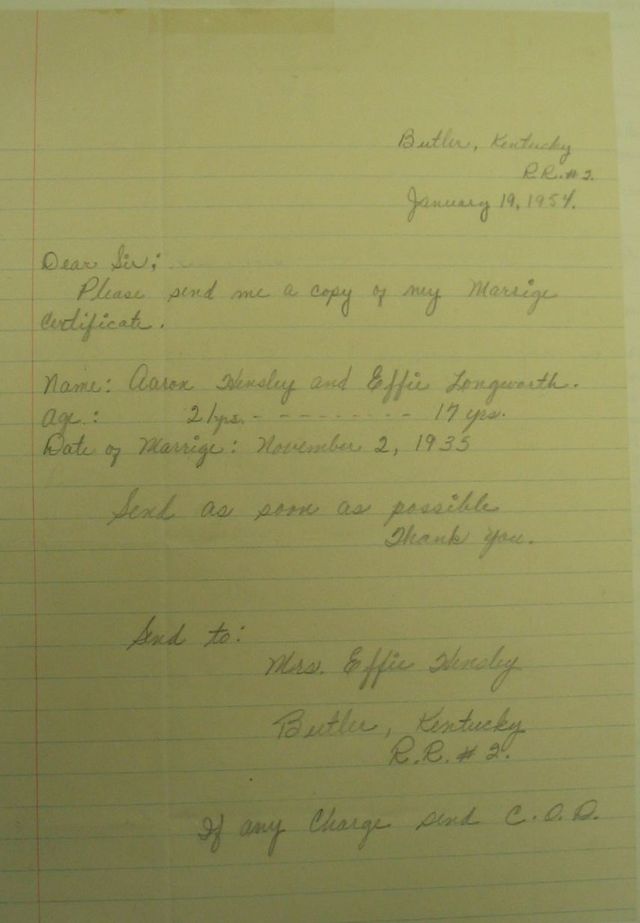 Butler, Kentucky
R.R. # 2.
January 19, 1954.
Dear Sir;
Please send me a copy of my Marrige
Certificate.
Name: Aaron Hensley and Effie Longworth.
Age: 21 yrs. - - - - - - - - - 17 yrs.
Date of Marrige: November 2, 1935
Send as soon as possible
Thank you.
Send to:
Mrs. Effie Hensley
Butler, Kentucky
R.R. # 2.
If any Charge send C.O.D.